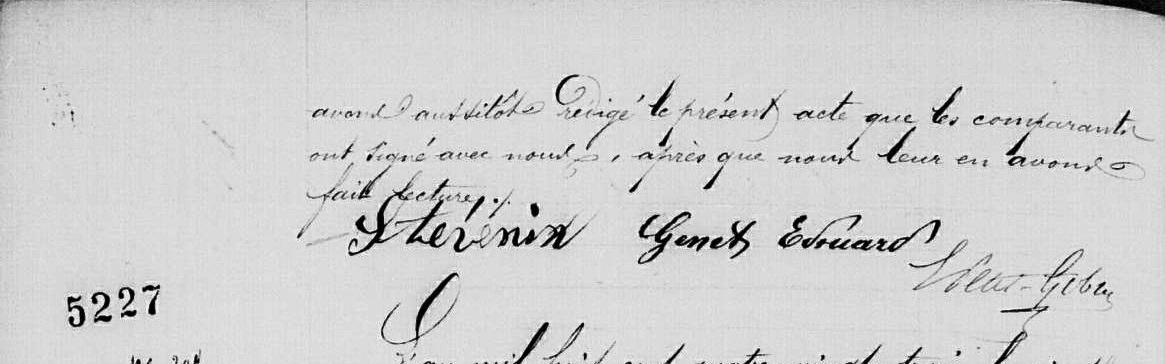 avons aussitôt rédigé le présent acte que les comparants
ont signé avec nous, après que nous leur en avons
fait lecture ./.
Stévénin Genet Edouard
5227
L'an mil huit cent quatre vingt